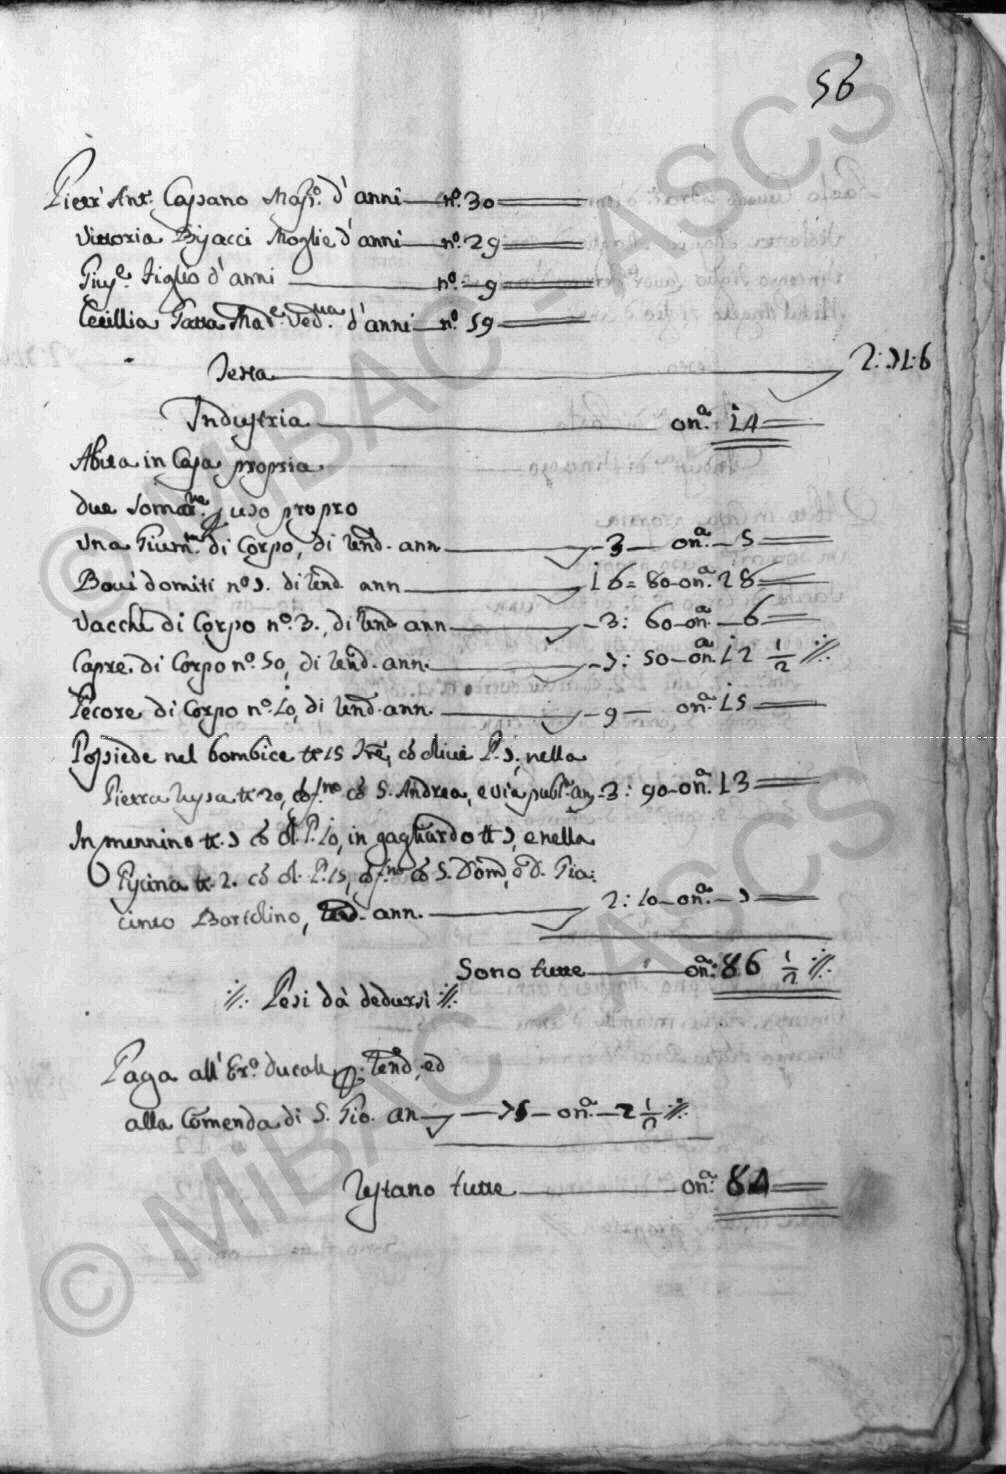 56
Pietr' Ant.° Capano Mass.° d'anni n.° 30
Vittoria Bisacci Moglie d'anni n.° 29
Gius.e figlio d'anni n.° 9
Cecillia Mad.e Ved.va d'anni n.° 59
Testa
Industria on.a 14
Abita in Casa propria
due Somar.ne uso propro
Una Gium.ta di Corpo, di rend. ann. 3 on.a 5
Bovi domiti n.° 5. di rend. ann. 16: 80 on.a 28
Vacche di Corpo n.° 3., di rend. ann. 3: 60 on.a 6
Capre di Corpo n.° 50, di rend. ann. 7: 50 on.a 12 1/2
Pecore di Corpo n.° 40, di rend. ann. 9 on.a 15
Possiede nel bombice tt. 15 con olivi P. 5, nella
Pietra tt. 20, conf.no con S. Andrea, e via publ.a an. 3: 90 on.a 13
In mennino P. 10, in gagliardo e nella
tt. 2. P. 15, conf.no con S. Dom.co, D. Gia:
cinto Bartolino, rend. ann. 2: 10 on.a
Sono tutte on.a 86 1/2
Pesi dà dedursi
Paga all' Er.° Ducale rend. ed
alla Comenda di S. Gio. an. 75 on.a 2 1/2
Restano tutte on.a 84
© MiBAC - ASCS
© MiBAC - ASCS